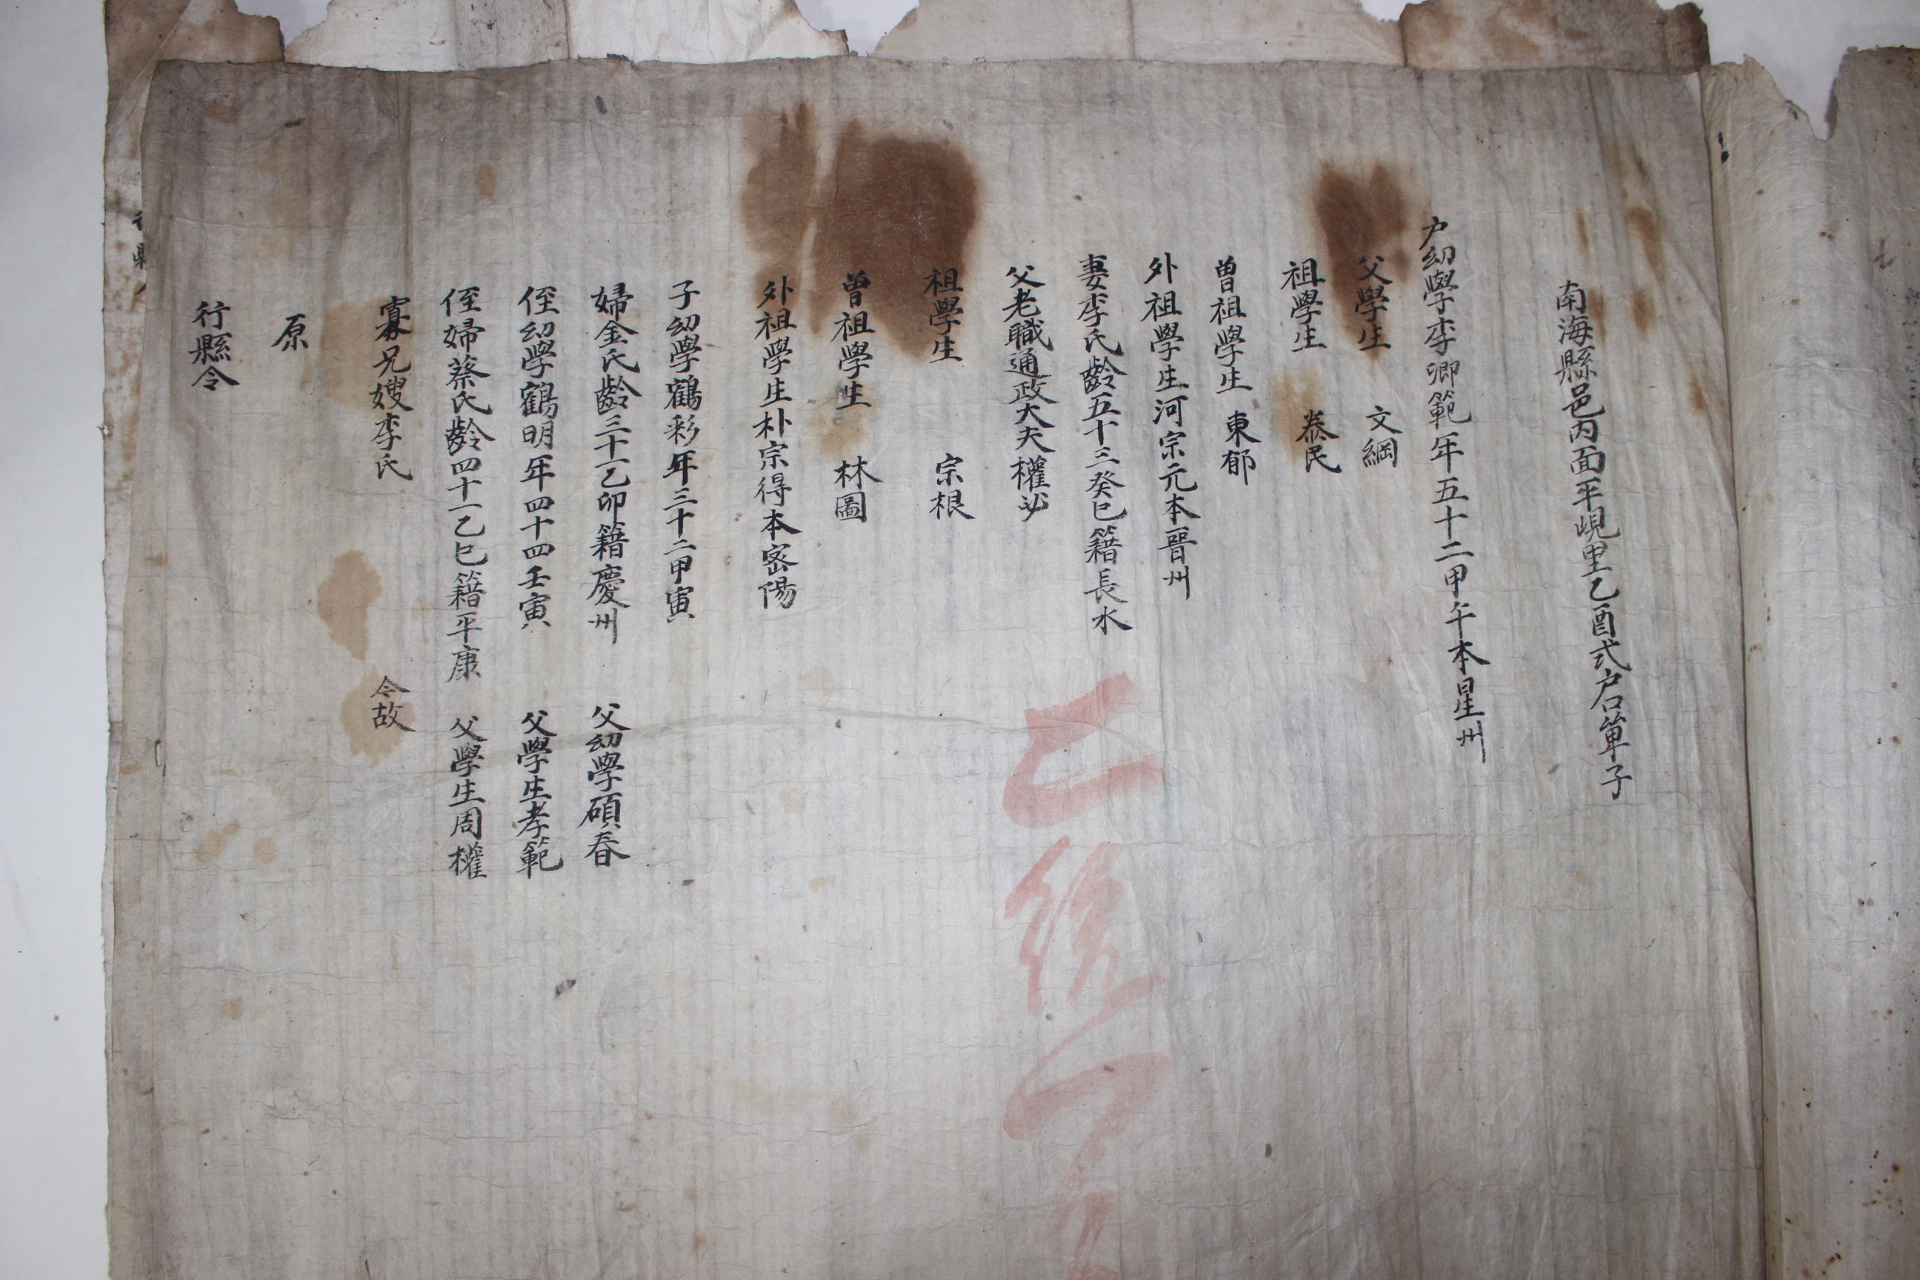 南海縣邑內面平峴里乙酉式戶口單子
戶幼學李卿範年五十二甲午本星州
父學生 文綱
祖學生 泰民
曾祖學生 東郁
外祖學生河宗元本晉州
妻李氏齡五十三癸巳籍長水
父老職通政大夫權
祖學生 宗根
曾祖學生 林圖
外祖學生朴宗得本密陽
子幼學鶴彩年三十二甲寅
婦金氏齡三十一乙卯籍慶州 父幼學碩春
侄幼學鶴明年四十四壬寅 父學生孝範
侄婦蔡氏齡四十一乙巳籍平康 父學生周權
寡兄嫂李氏 今故
原
行縣令
二統